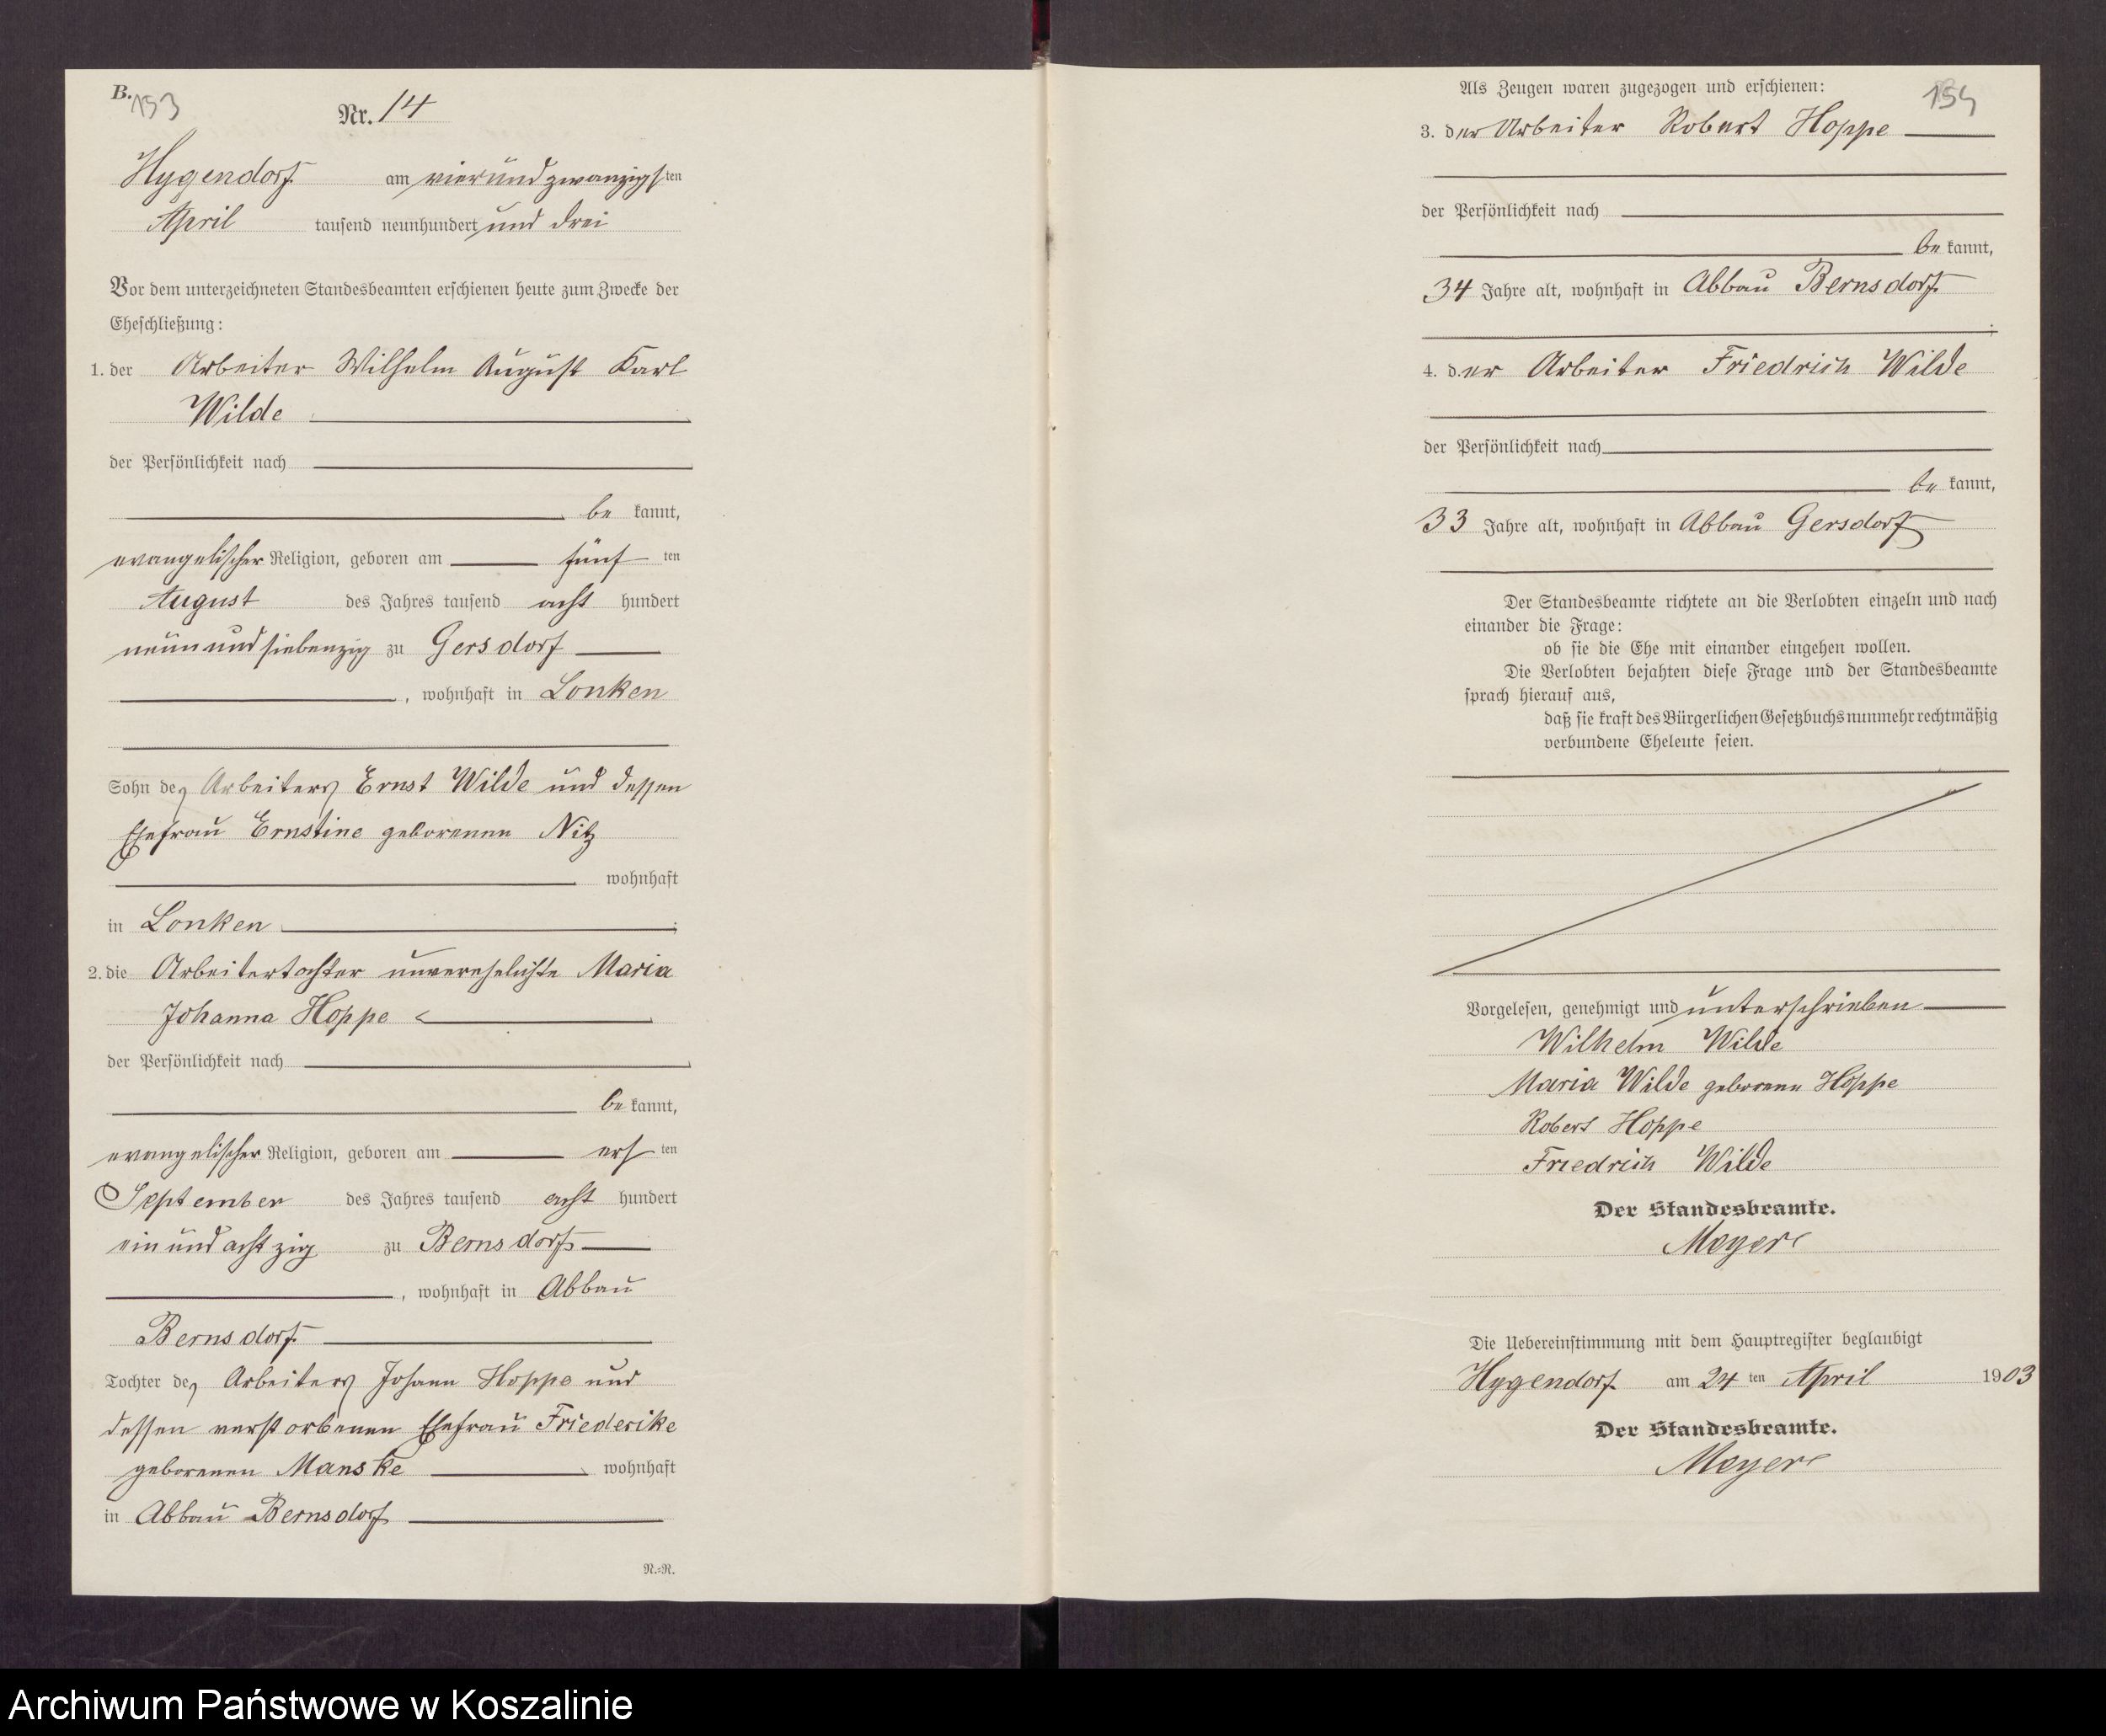 B.
153
Nr. 14
Hygendorf am vierundzwanzigsten
April tausend neunhundert und drei
Vor dem unterzeichneten Standesbeamten erschienen heute zum Zwecke der
Eheschließung:
1. der Arbeiter Wilhelm August Karl
Wilde
der Persönlichkeit nach
be kannt,
evangelischer Religion, geboren am fünf ten
August des Jahres tausend acht hundert
neunundsiebenzig zu Gersdorf
, wohnhaft in Lonken
Sohn des Arbeiters Ernst Wilde und dessen
Ehefrau Ernstine geborenen Nitz
wohnhaft
in Lonken ;
2. die Arbeitertochter unverehelichte Maria
Johanna Hoppe
der Persönlichkeit nach
be kannt,
evangelischer Religion, geboren am ers ten
September des Jahres tausend acht hundert
einundachtzig zu Bernsdorf
, wohnhaft in Abbau
Bernsdorf
Tochter des Arbeiters Johann Hoppe und
dessen verstorbenen Ehefrau Friederike
geborenen Manske wohnhaft
in Abbau Bernsdorf
N.=N.
154
Als Zeugen waren zugezogen und erschienen:
3. der Arbeiter Robert Hoppe
der Persönlichkeit nach
be kannt,
34 Jahre alt, wohnhaft in Abbau Bernsdorf
;
4. der Arbeiter Friedrich Wilde
der Persönlichkeit nach
be kannt,
33 Jahre alt, wohnhaft in Abbau Gersdorf
Der Standesbeamte richtete an die Verlobten einzeln und nach
einander die Frage:
ob sie die Ehe mit einander eingehen wollen.
Die Verlobten bejahten diese Frage und der Standesbeamte
sprach hierauf aus,
daß sie kraft des Bürgerlichen Gesetzbuchs nunmehr rechtmäßig
verbundene Eheleute seien.
Vorgelesen, genehmigt und unterschrieben
Wilhelm Wilde
Maria Wilde geborene Hoppe
Robert Hoppe
Friedrich Wilde
Der Standesbeamte.
Meyer
Die Uebereinstimmung mit dem Hauptregister beglaubigt
Hygendorf am 24 ten April 1903
Der Standesbeamte.
Meyer
Archiwum Państwowe w Koszalinie